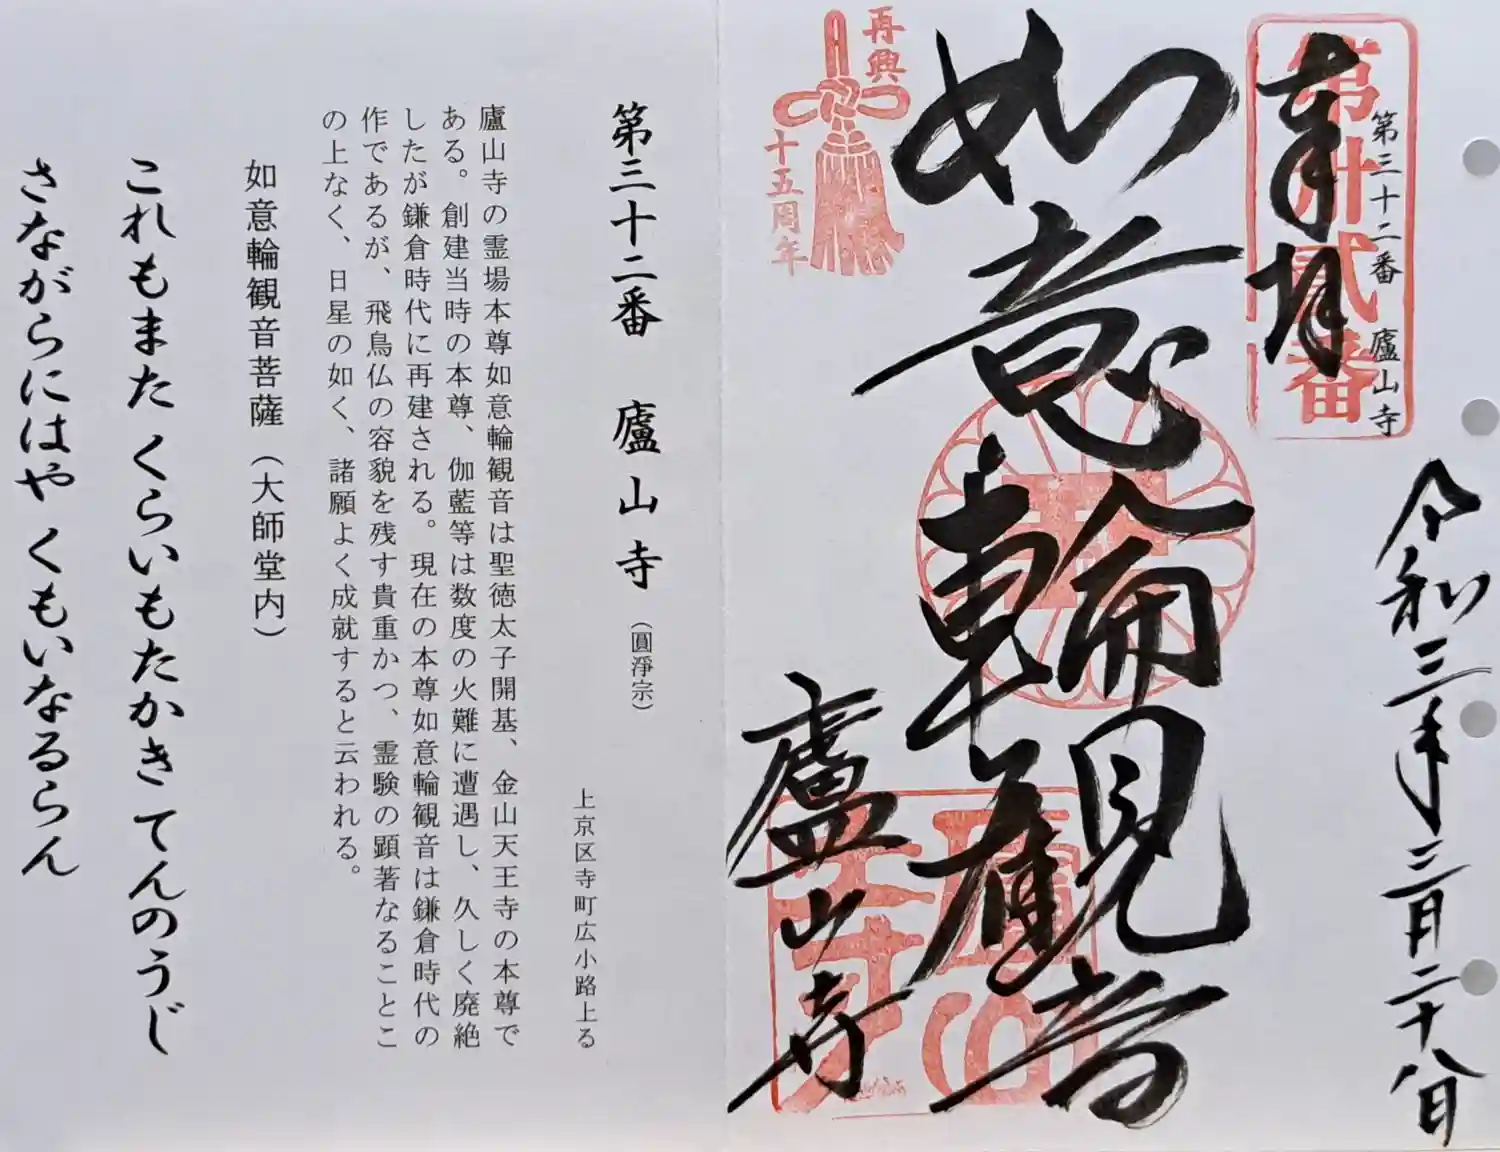 奉拝
第卅弐番
第三十二番 廬山寺
令和三年三月二十八日
如意輪観音
廬山寺
再興
十五周年
第三十二番 廬山寺(圓淨宗)
上京区寺町広小路上る
廬山寺の霊場本尊如意輪観音は聖徳太子開基、金山天王寺の本尊で
ある。創建当時の本尊、伽藍等は数度の火難に遭遇し、久しく廃絶
したが鎌倉時代に再建される。現在の本尊如意輪観音は鎌倉時代の
作であるが、飛鳥仏の容貌を残す貴重かつ、霊験の顕著なることこ
の上なく、日星の如く、諸願よく成就すると云われる。
如意輪観音菩薩(大師堂内)
これもまた くらいもたかき てんのうじ
さながらにはや くもいなるらん